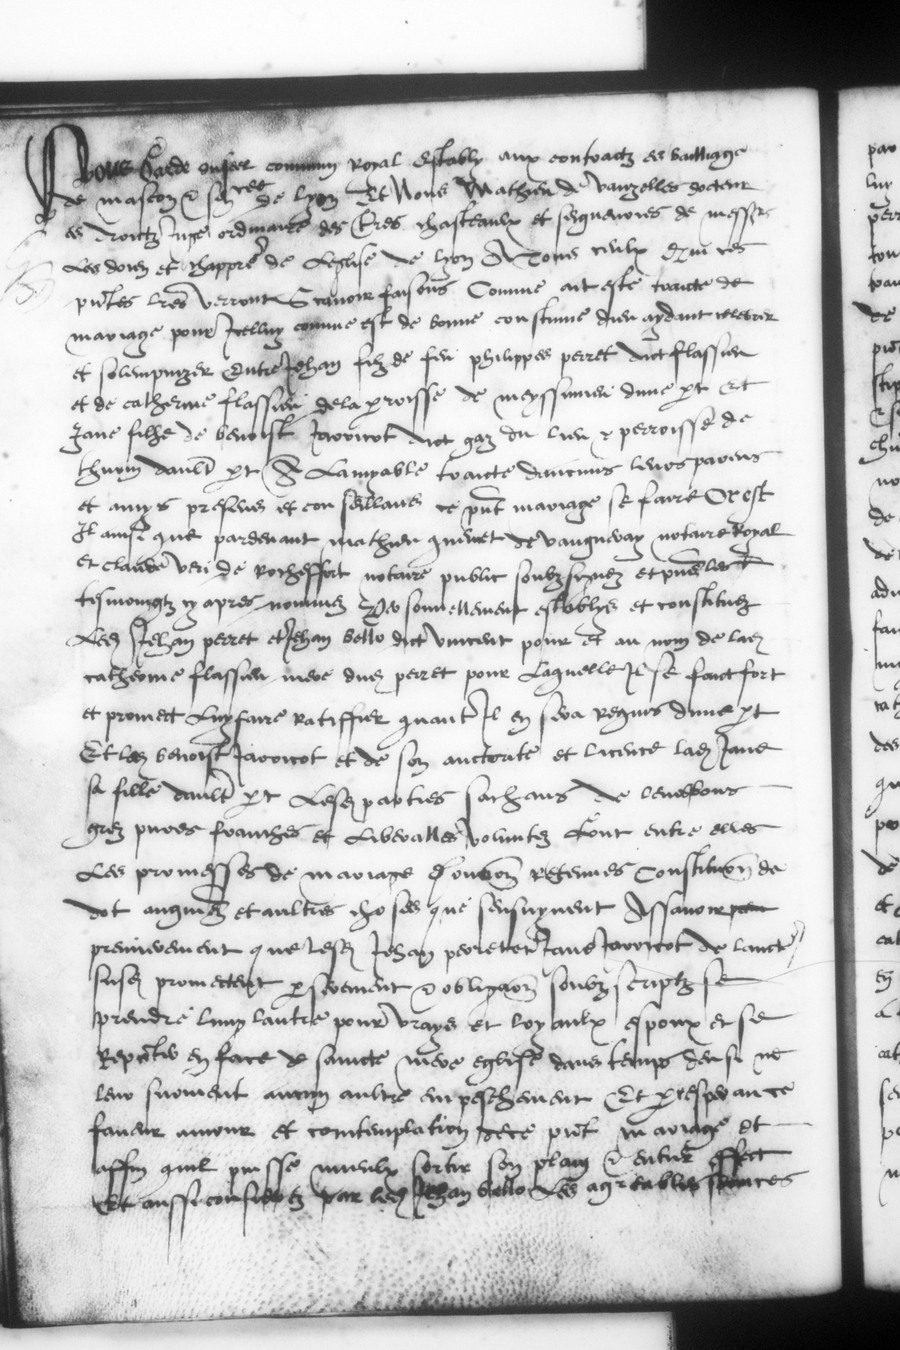 Nous Garde du seel commun Royal estably aux contractz es bailliage
de mascon & sen^cee de lyon Et Nous Mathieu de Vauzelles docteur
es droictz Juge ordinaire des t^res chasteaulx et seigneuries de mess^rs
Les doien et chappr^e de Leglise de lyon A Tous ceulx qui ces
p^ntes l^res verront Scavoir faisons Comme ait este traicte de
mariage pour Icelluy comme est de bonne coustume dieu aydant celebrer
et solempnizer Entre Jehan filz de feu philippes perret dict flassieu
et de catherine flassieu de la p^roisse de meyssimieu dune p^t Et
Jane fille de benoist Javoicot dict gaz du lieu & perroisse de
thurin daul^t p^t A Lamyable traicte daucuns leurs parens
et amys presens et conseillans ce p^nt mariage se faire Or est
Il ainsi que pardevant mathieu quinet de vaugneray notaire Royal
et claude de Rocheffort notaire public soubzsignez et p^ns les
tesmoingtz cy apres nommez Personnellement establys et constituez
Lesd Jehan perret et Jehan bello dict vincent pour et au nom de lad
catherine flassieu mere dud perret pour Laquelle Il se faict fort
et promect Luy faire Ratiffier quant Il en sera Requis dune p^t
Et led benoist Javoicot et de son auctorite et licence lad Jane
sa fille daul^t p^t Lesd parties sachans de leurs bons
grez pures franches et Liberalles voluntez Font entre elles
Les promesses de mariage Constitu^on de
dot augme^n et aultres choses que sensuyvent Assavoir
premierement que Lesd Jehan perret et Jane Javoicot de lauct^e
susd promectent p^ serement & obliga^on soubz scriptz se
prendre lung lautre pour vrays et loyaulx espoux et se
en face de saincte mere eglise dans temps deu si ne
leur survient aucun aultre empeschement Et p^ Esperance
faveur amour et contemplation de ce p^nt mariage Et
affin quil puisse mieulx sortir son plain & entier effect
Et aussi considerez par led Jehan bello Les agreables services